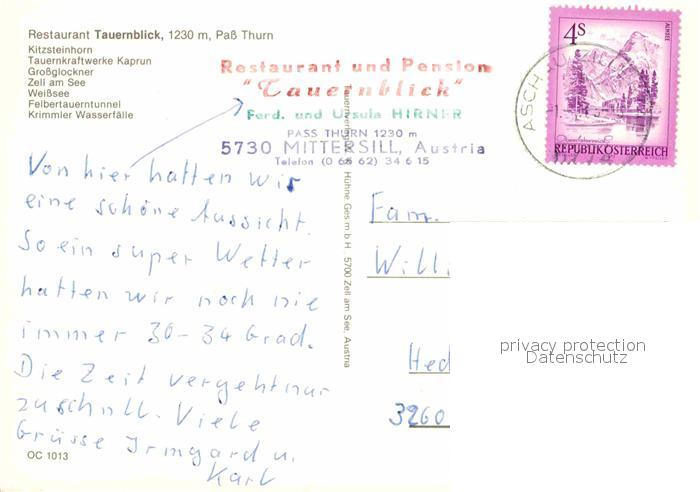 Restaurant Tauernblick, 1230 m, Paß Thurn
Kitzsteinhorn
Tauernkraftwerke Kaprun
Großglockner
Zell am See
Weißsee
Felbertauerntunnel
Krimmler Wasserfälle
Restaurant und Pension
"Tauernblick"
Ferd. und Ursula HIRNER
PASS THURN 1230 m
5730 MITTERSILL, Austria
Telefon (0 65 62) 34 6 15
4S
ALMSEE
REPUBLIK ÖSTERREICH
Von hier hatten wir
eine schöne Aussicht.
So ein super Wetter
hatten wir noch nie
immer 30-34 Grad.
Die Zeit vergeht nur
zu schnell. Viele
Grüsse Irmgard u.
Karl
OC 1013
Hühne Ges m b H 5700 Zell am See, Austria
Fam.
Willi
Hed
3260
privacy protection
Datenschutz